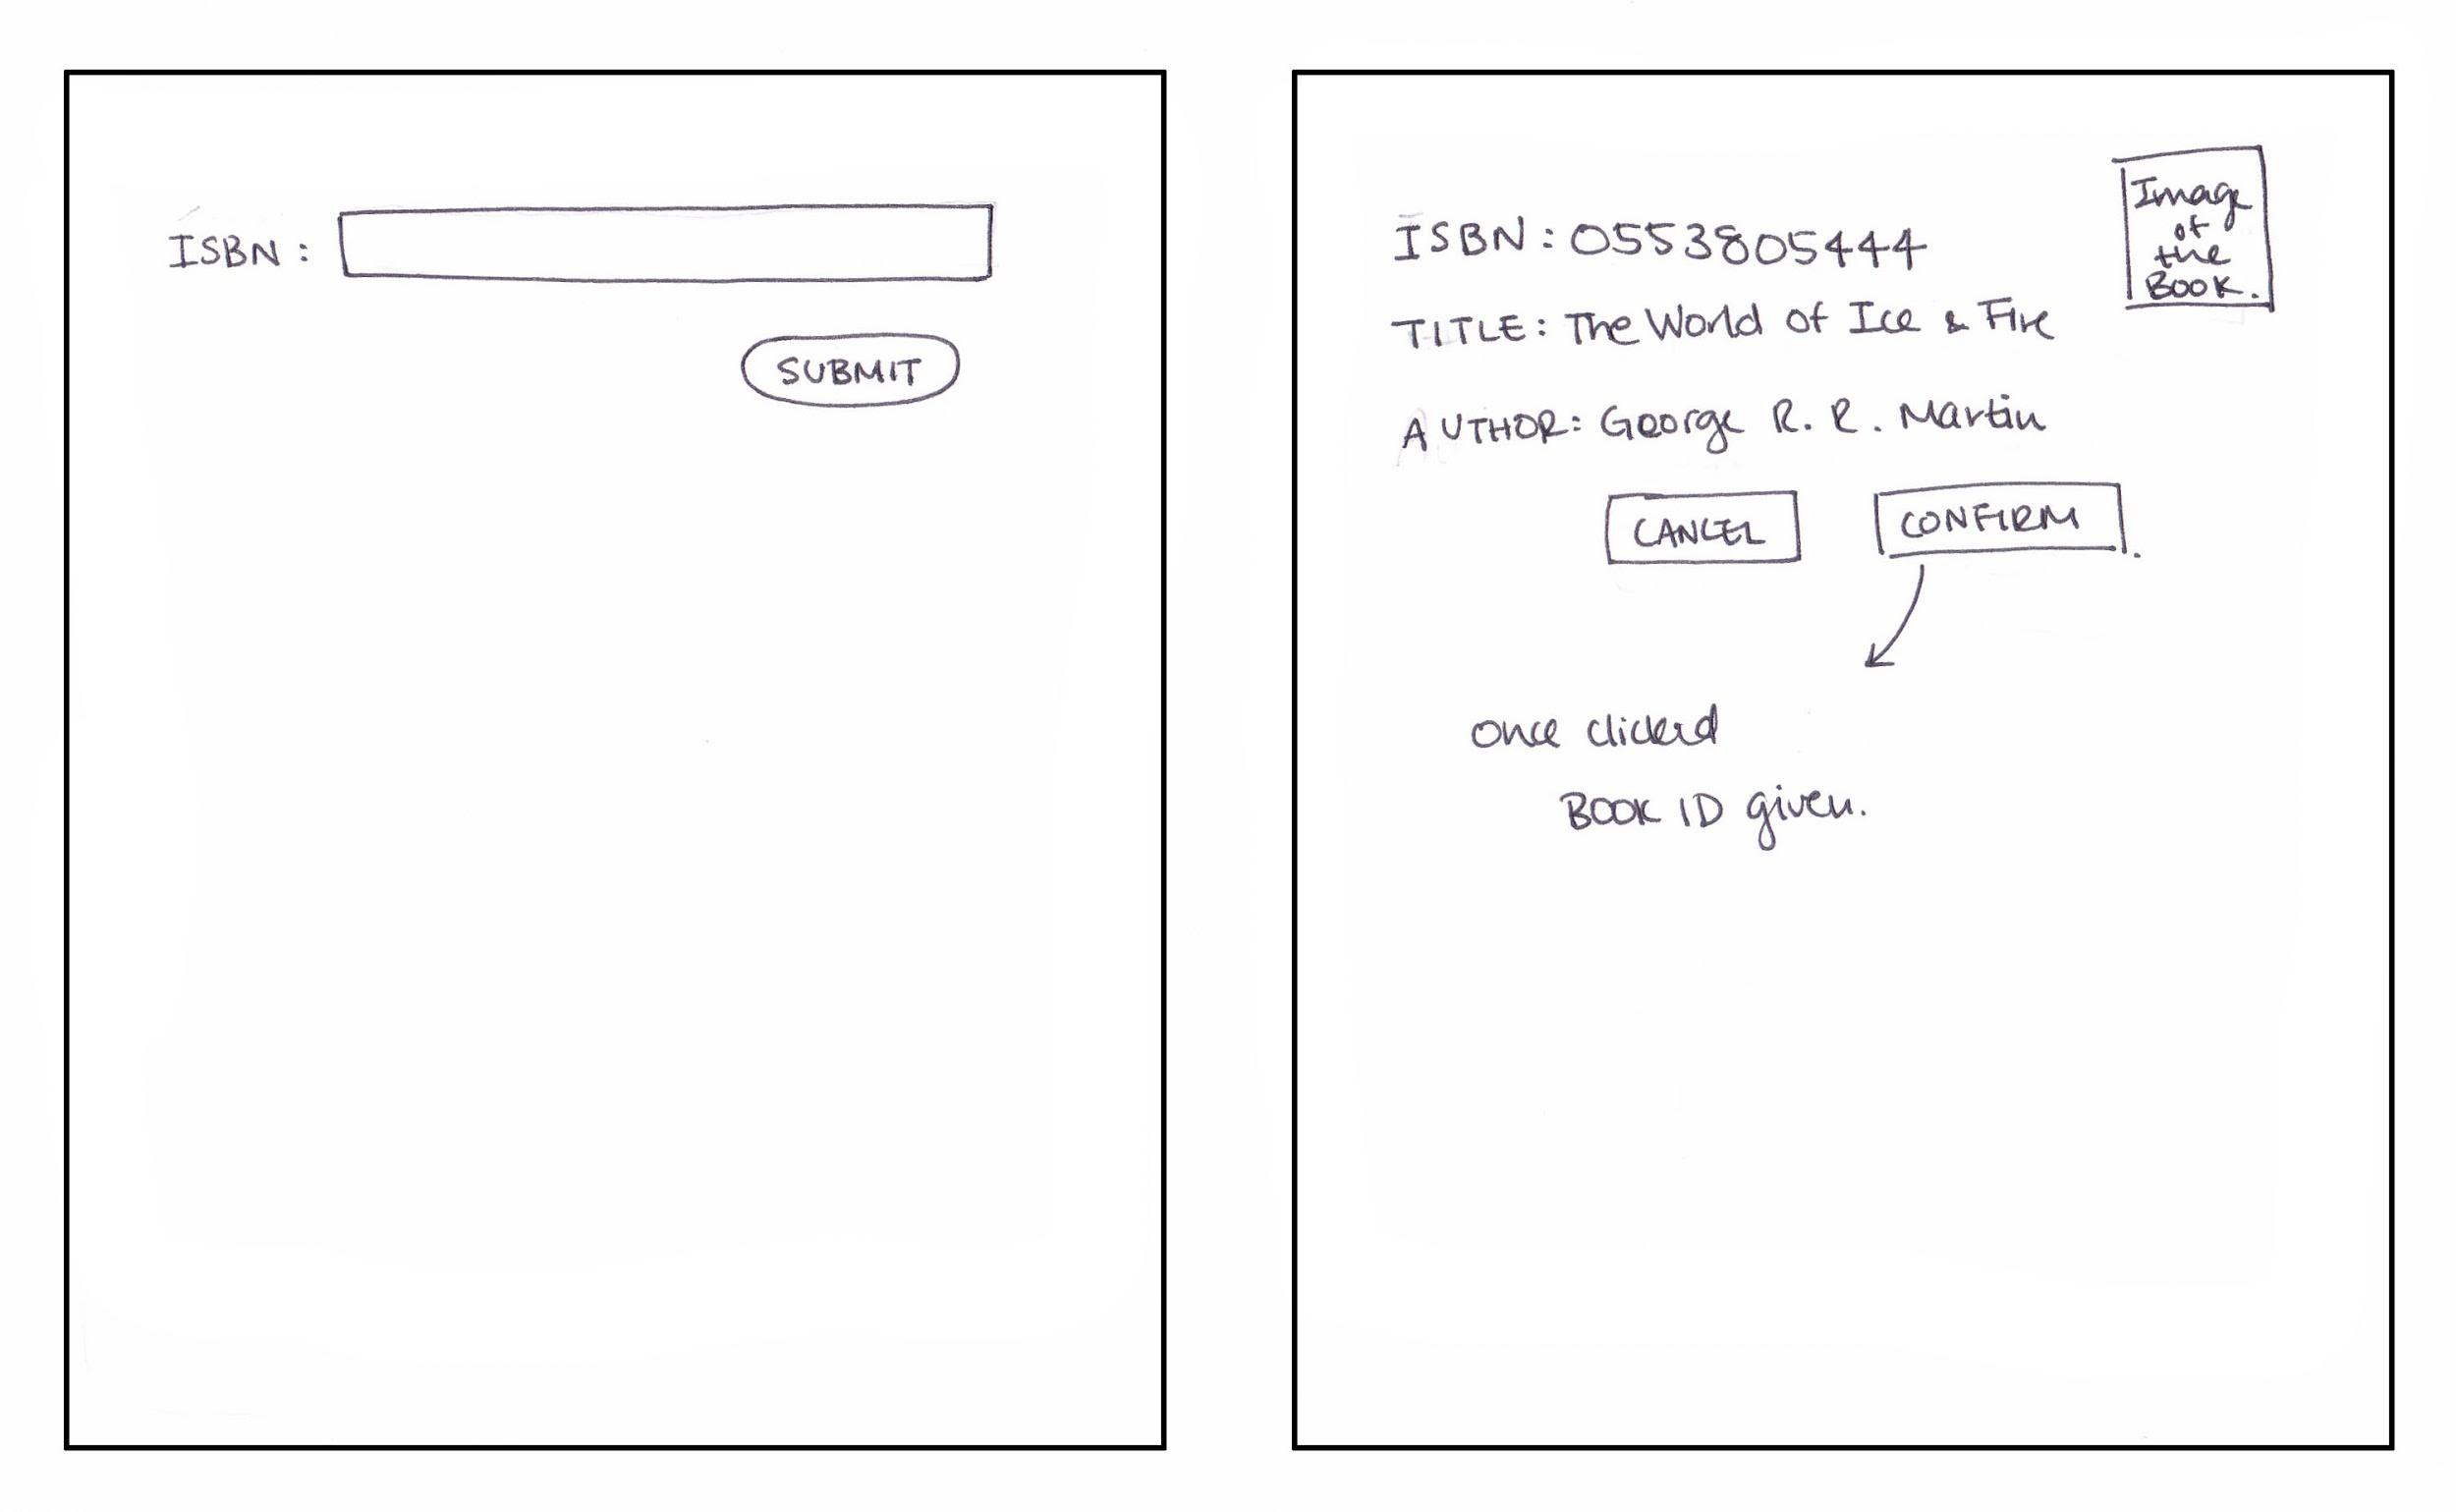 ISBN :
SUBMIT
ISBN : 0553805444
Image
of
the
Book.
TITLE : The World of Ice & Fire
AUTHOR: George R. R. Martin
CANCEL
CONFIRM
once clicked
BOOK ID given.